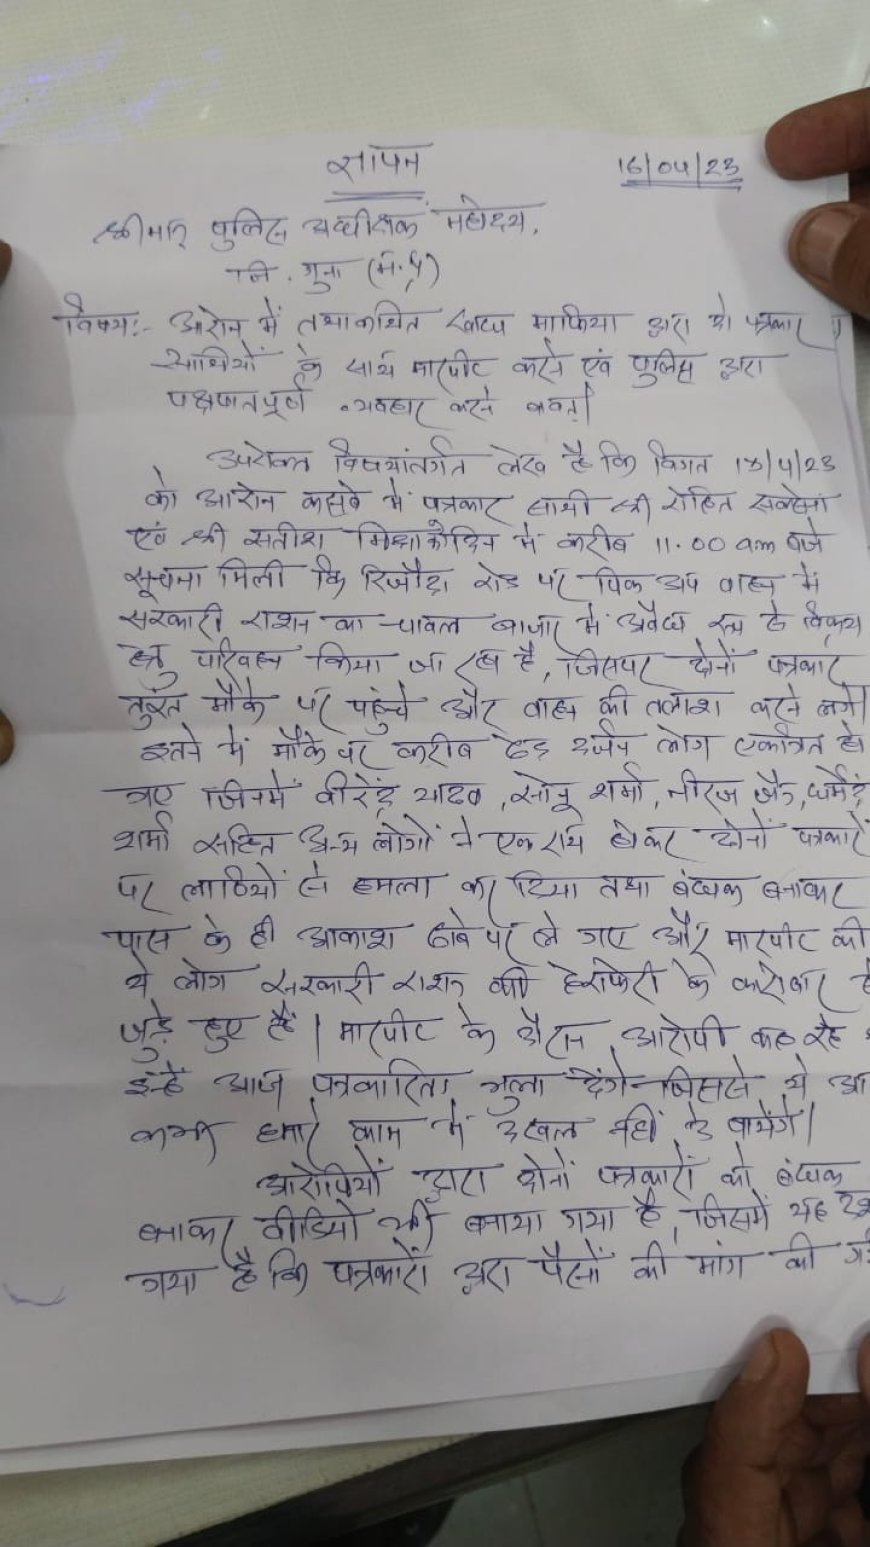 ज्ञापन
16/04/23
श्रीमान् पुलिस अधीक्षक महोदय,
जि. गुना (म.प्र)
विषय:- आरोन में तथाकथित खाद्य माफिया द्वारा दो पत्रकार
साथियों के साथ मारपीट करने एवं पुलिस द्वारा
पक्षपातपूर्ण व्यवहार करने बावत्।
उपरोक्त विषयांतर्गत लेख है कि विगत /4/23
को आरोन कस्बे में पत्रकार साथी श्री रोहित सक्सेना
एवं श्री सतीश को दिन में करीब 11.00 am बजे
सूचना मिली कि रिजौदा रोड पर पिक अप वाहन में
सरकारी राशन का चावल बाजार में अवैध रूप से विक्रय
हेतु परिवहन किया जा रहा है, जिसपर दोनों पत्रकार
तुरंत मौके पर पहुंचे और वाहन की तलाश करने लगे।
इतने में मौके पर करीब डेढ़ दर्जन लोग एकत्रित हो
गए जिनमें वीरेंद्र यादव, सोनू शर्मा, नीरज जैन, धर्मेंद्र
शर्मा सहित अन्य लोगों ने एक राय होकर दोनों पत्रकारों
पर लाठियों से हमला कर दिया तथा बंधक बनाकर
पास के ही आकाश ढाबे पर ले गए और मारपीट की
ये लोग सरकारी राशन की हेराफेरी के कारोबार से
जुड़े हुए हैं। मारपीट के दौरान आरोपी कह रहे
इन्हें आज पत्रकारिता भुला देंगे जिससे ये
कभी हमारे काम में दखल नहीं दे पायेंगे।
आरोपियों द्वारा दोनों पत्रकारों को बंधक
बनाकर वीडियो भी बनाया गया है, जिसमें यह
गया है कि पत्रकारों द्वारा पैसों की मांग की